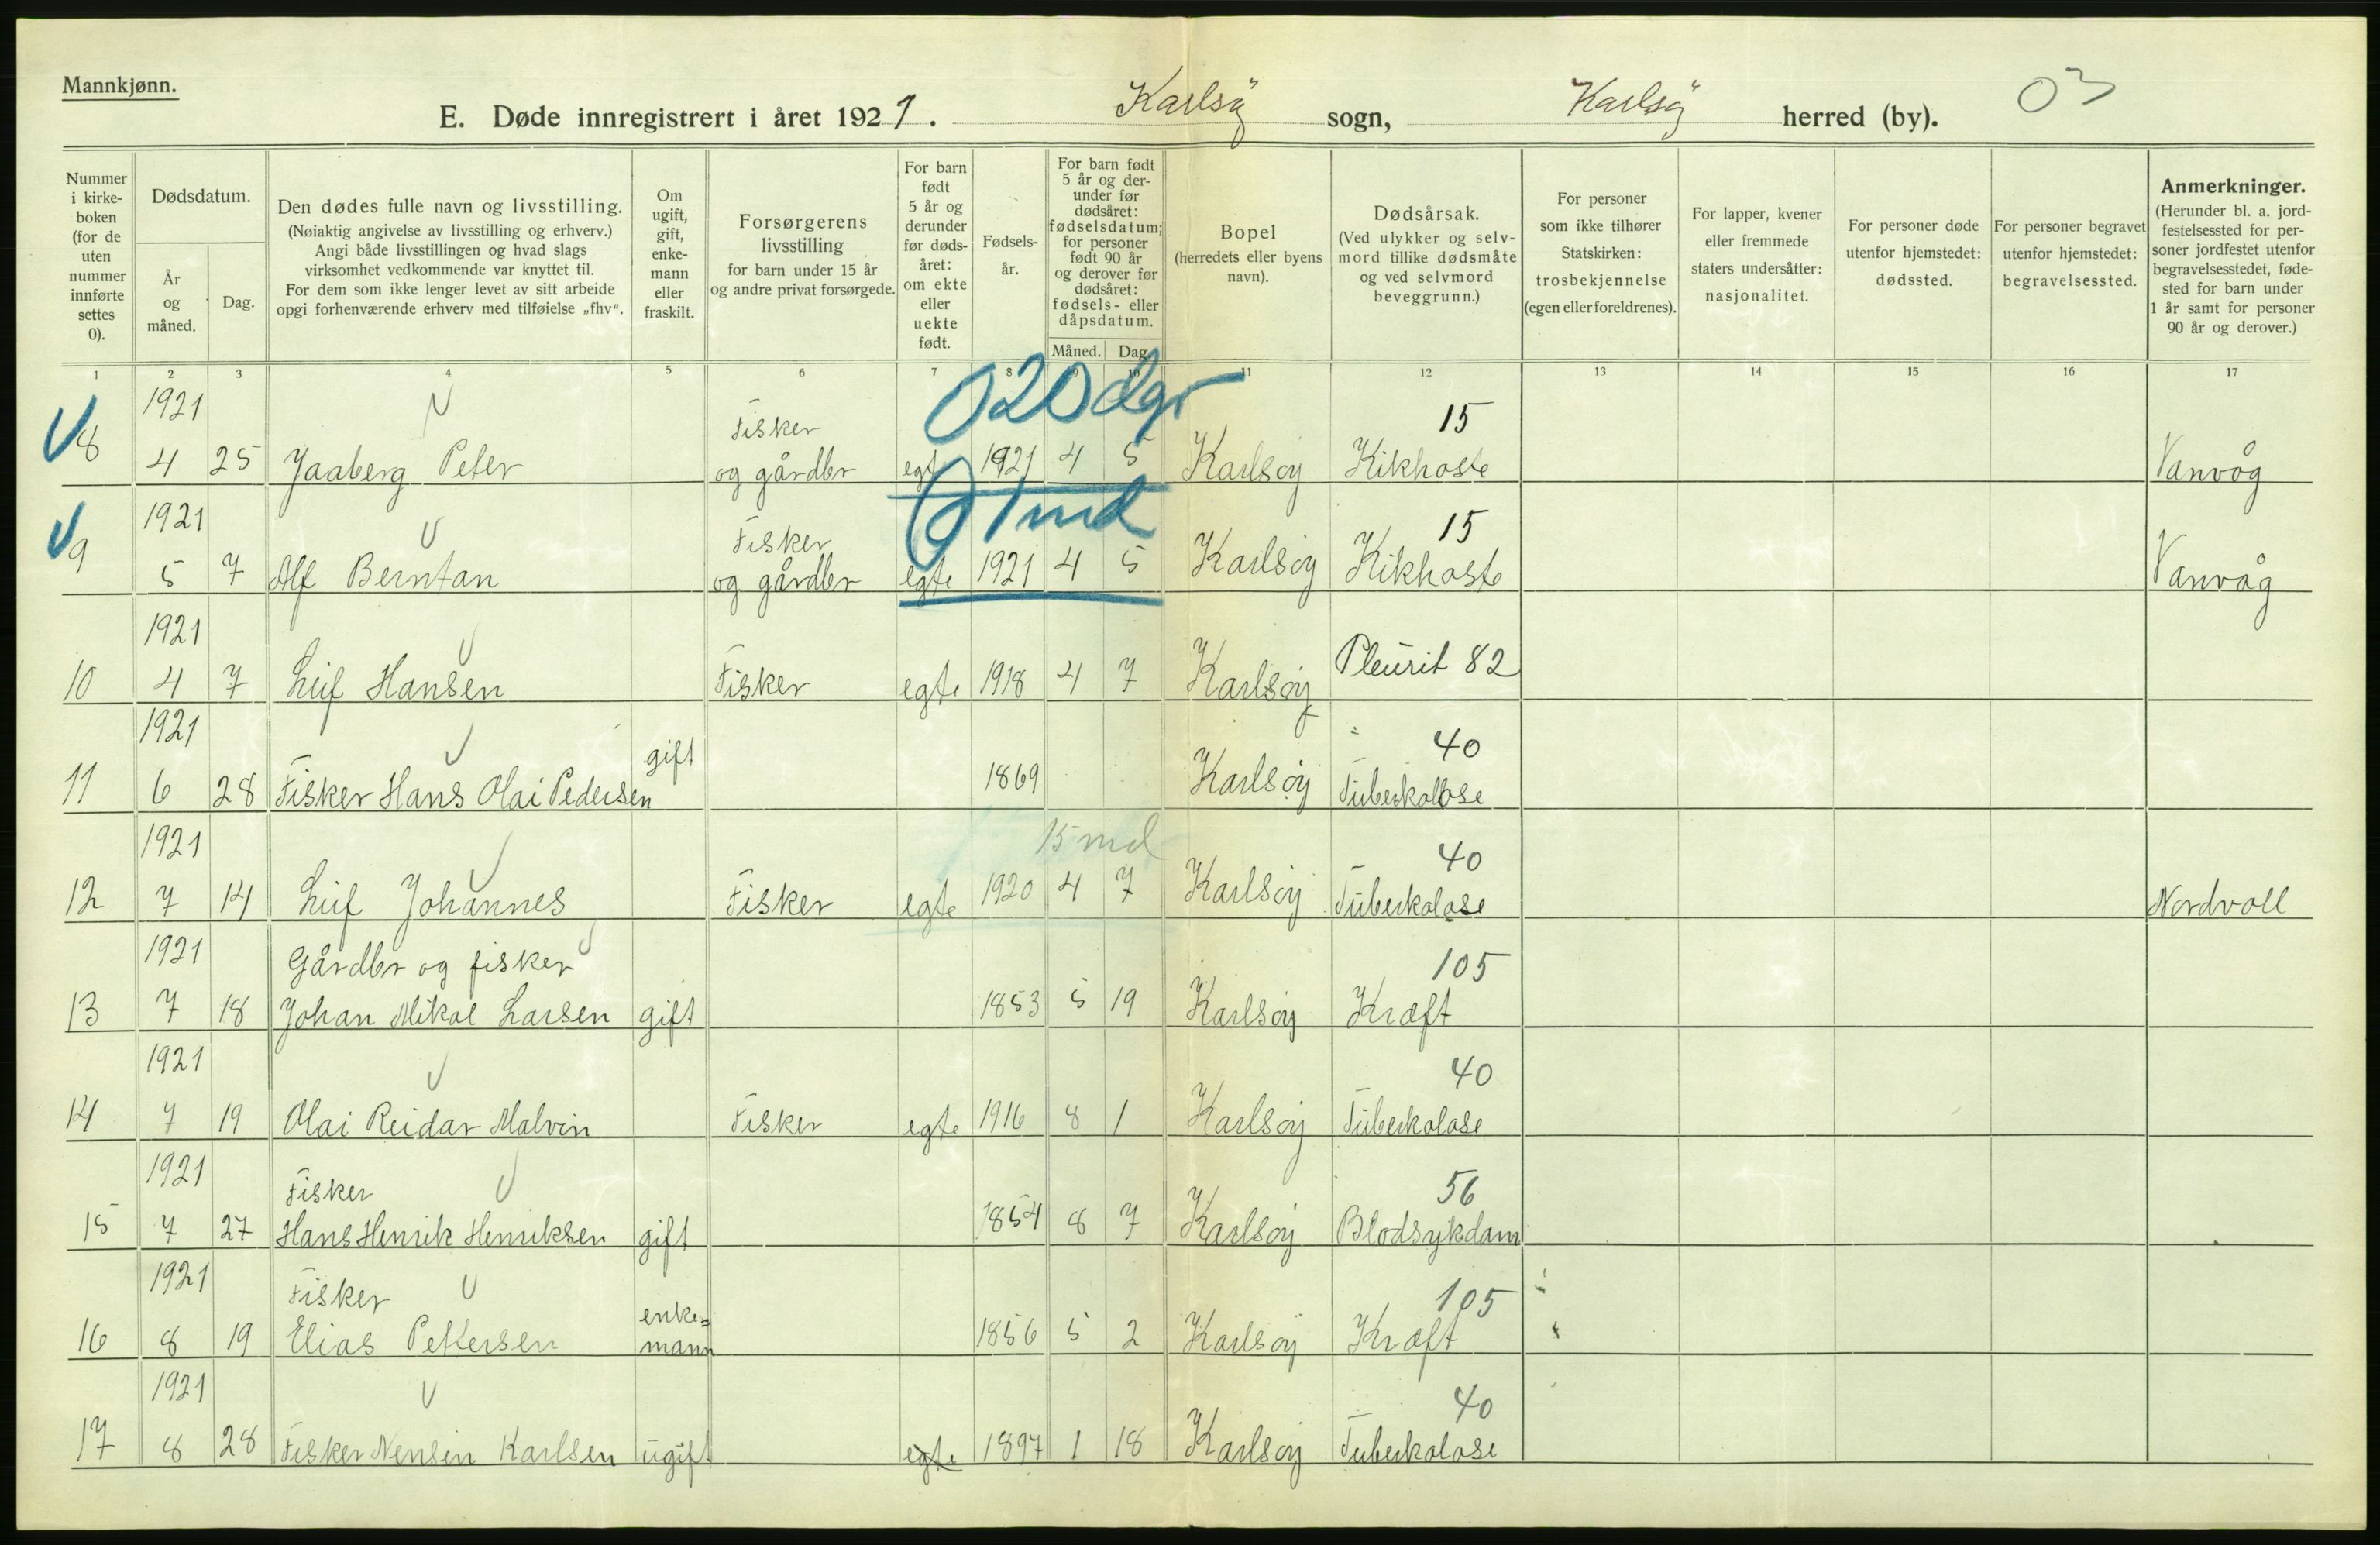 Mannkjønn.
E. Døde innregistrert i året 1921. Karlsöy sogn, Karlsöy herred (by). 03
Nummer i kirke- boken (for de uten nummer innførte settes 0).
Dødsdatum.
År og måned.
Dag.
Den dødes fulle navn og livsstilling.
(Nøiaktig angivelse av livsstilling og erhverv.)
Angi både livsstillingen og hvad slags
virksomhet vedkommende var knyttet til.
For dem som ikke lenger levet av sitt arbeide
opgi forhenværende erhverv med tilføielse „fhv“.
Om ugift, gift, enke- mann eller fraskilt.
Forsørgerens
livsstilling
for barn under 15 år
og andre privat forsørgede.
For barn født 5 år og derunder før døds- året: om ekte eller uekte født.
Fødsels- år.
For barn født 5 år og der- under før dødsåret: fødselsdatum; for personer født 90 år og derover før dødsåret: fødsels- eller dåpsdatum.
Måned. Dag.
Bopel
(herredets eller byens
navn).
Dødsårsak.
(Ved ulykker og selv-
mord tillike dødsmåte
og ved selvmord
beveggrunn.)
For personer
som ikke tilhører
Statskirken:
trosbekjennelse
(egen eller foreldrenes).
For lapper, kvener
eller fremmede
staters undersåtter:
nasjonalitet.
For personer døde
utenfor hjemstedet:
dødssted.
For personer begravet
utenfor hjemstedet:
begravelsessted.
Anmerkninger.
(Herunder bl. a. jord-
festelsessted for per-
soner jordfestet utenfor
begravelsesstedet, føde-
sted for barn under
1 år samt for personer
90 år og derover.)
1 2 3 4 5 6 7 8 9 10 11 12 13 14 15 16 17
1921 Fisker 020 dgr 15
8 4 25 Jaaberg Peter og gårdbr egt 1921 4 5 Karlsöy Kikhoste Vanvåg
1921 Fisker 01 md 15
9 5 7 Alf Berntan og gårdbr egte 1921 4 5 Karlsöy Kikhoste Vanvåg
1921
10 4 7 Leif Hansen Fisker egte 1918 4 7 Karlsöy Pleurit 82
1921 gift 40
11 6 28 Fisker Hans Olai Pedersen 1869 Karlsöy Tuberkolose
1921 15 md 40
12 7 14 Leif Johannes Fisker egte 1920 4 7 Karlsöy Tuberkolose Nordvoll
1921 Gårdbr og fisker 105
13 7 18 Johan Mikal Larsen gift 1853 5 19 Karlsöy Kræft
1921 40
14 7 19 Olai Reidar Malvin Fisker egte 1916 8 1 Karlsöy Tuberkolose
1921 Fisker 56
15 7 27 Hans Henrik Henriksen gift 1854 8 7 Karlsöy Blodsykdam
1921 Fisker enke= 105
16 8 19 Elias Pettersen mann 1856 5 2 Karlsöy Kræft
1921 40
17 8 28 Fisker Nensin Karlsen ugift egte 1897 1 18 Karlsöy Tuberkolose